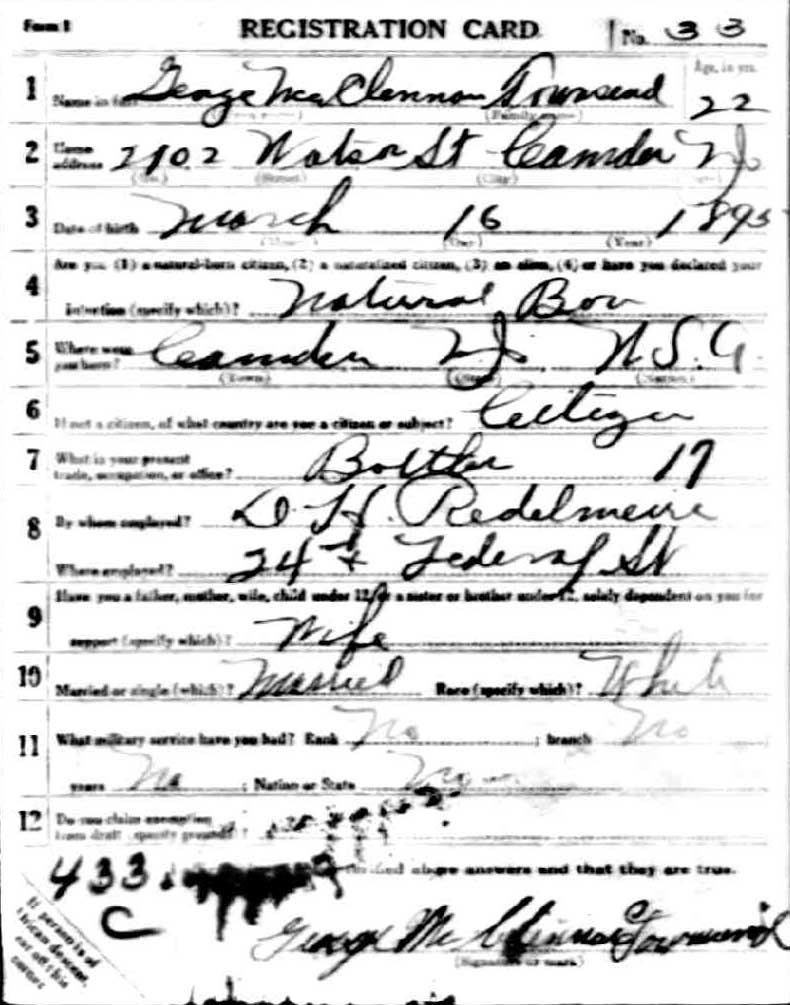 Form 1 REGISTRATION CARD No. 33
1 Name in full George McClennon Townsend Age, in yrs. 22
(Family name)
2 Home address 2102 Watson St Camden NJ
(No.) (Street) (City)
3 Date of birth March 16 1895
(Month) (Day) (Year)
4 Are you (1) a natural-born citizen, (2) a naturalized citizen, (3) an alien, (4) or have you declared your
intention (specify which)? Natural Bor
5 Where were you born? Camden NJ. U.S.A.
(Town) (State) (Nation)
6 If not a citizen, of what country are you a citizen or subject? Citizen
7 What is your present trade, occupation, or office? Bottler 17
8 By whom employed? D. H. Redelmeire
Where employed? 24th & Federal St
9 Have you a father, mother, wife, child under 12, or a sister or brother under 12, solely dependent on you for
support (specify which)? Wife
10 Married or single (which)? Married Race (specify which)? White
11 What military service have you had? Rank No ; branch No
years No ; Nation or State
12 Do you claim exemption from draft (specify grounds)?
433
C verified above answers and that they are true.
If person is of African descent, cut off this corner
George McClennon Townsend
(Signature or mark)